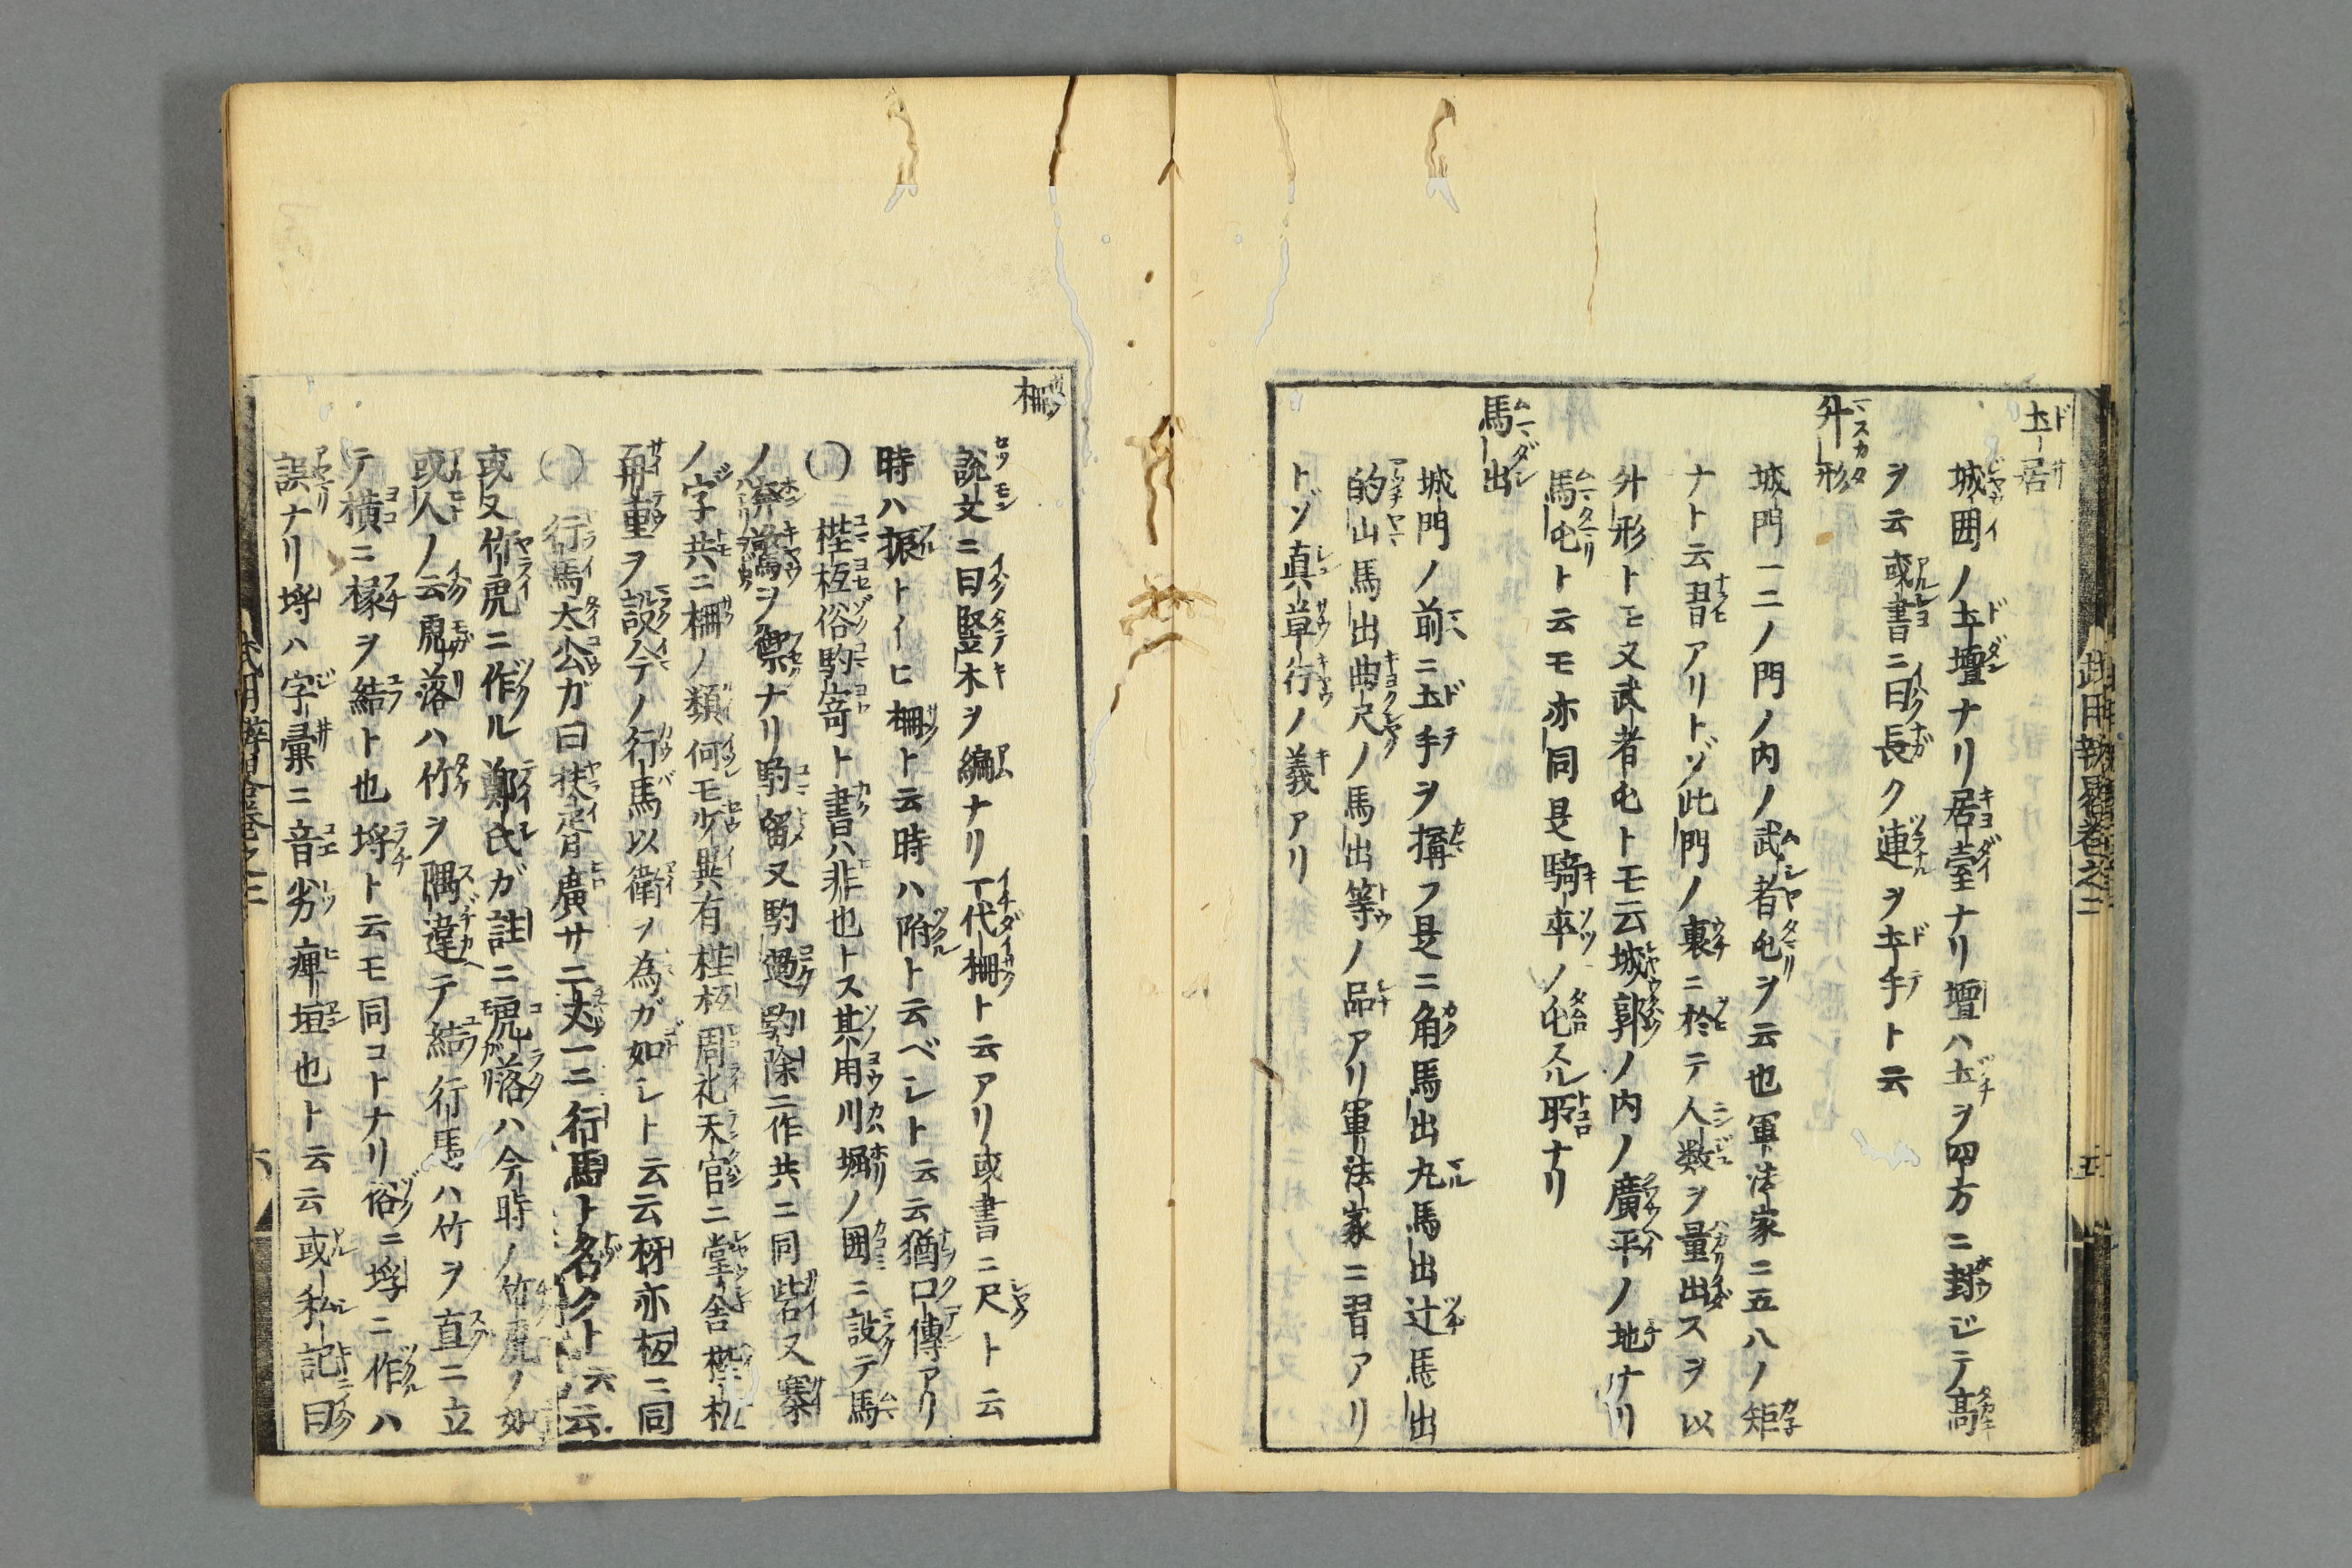 土居
城囲ノ土壇ナリ居臺ナリ壇ハ土ヲ四方ニ封ジテ高
ヲ云或書ニ曰長ク連ヲ土手ト云
升形
城門一二ノ門ノ内ノ武者屯ヲ云也軍法家ニ五八ノ矩
ナト云習アリトゾ此門ノ裏ニ於テ人数ヲ量出スヲ以
升形トモ又武者屯トモ云城郭ノ内ノ廣平ノ地ナリ
馬屯ト云モ亦同是騎卒ノ屯スル所ナリ
馬出
城門ノ前ニ土手ヲ構フ是ニ角馬出丸馬出辻馬出
的山馬出曲尺ノ馬出等ノ品アリ軍法家ニ習アリ
トゾ真草行ノ義アリ
柵
説文ニ曰竪木ヲ編ナリ一代柵ト云アリ或書ニ尺ト云
時ハ振トイヒ柵ト云時ハ附ト云ベシト云云猶口傳アリ
〇梐枑俗駒寄ト書ハ非也トス其用川堀ノ囲ニ設テ馬
ノ奔驚ヲ禦ナリ駒留又駒過駒除ニ作共ニ同砦又寨
ノ字共ニ柵ノ類何モ少異有梐枑周礼天官ニ掌舎梐枑
再重ヲ設今ノ行馬以衛ヲ為ガ如シト云云枒亦枑ニ同
〇行馬太公ガ曰扶胥廣サ二丈一ニ行馬ト名クト云云
或又竹虎ニ作ル鄭氏ガ註ニ虎落ハ今時ノ竹虎ノ如
或人ノ云虎落ハ竹ヲ隅違テ結行馬ハ竹ヲ直ニ立
テ横ニ椽ヲ結ト也埒ト云モ同コトナリ俗ニ垺ニ作ハ
誤ナリ埒ハ字彙ニ音劣痺垣也ト云云或私記曰